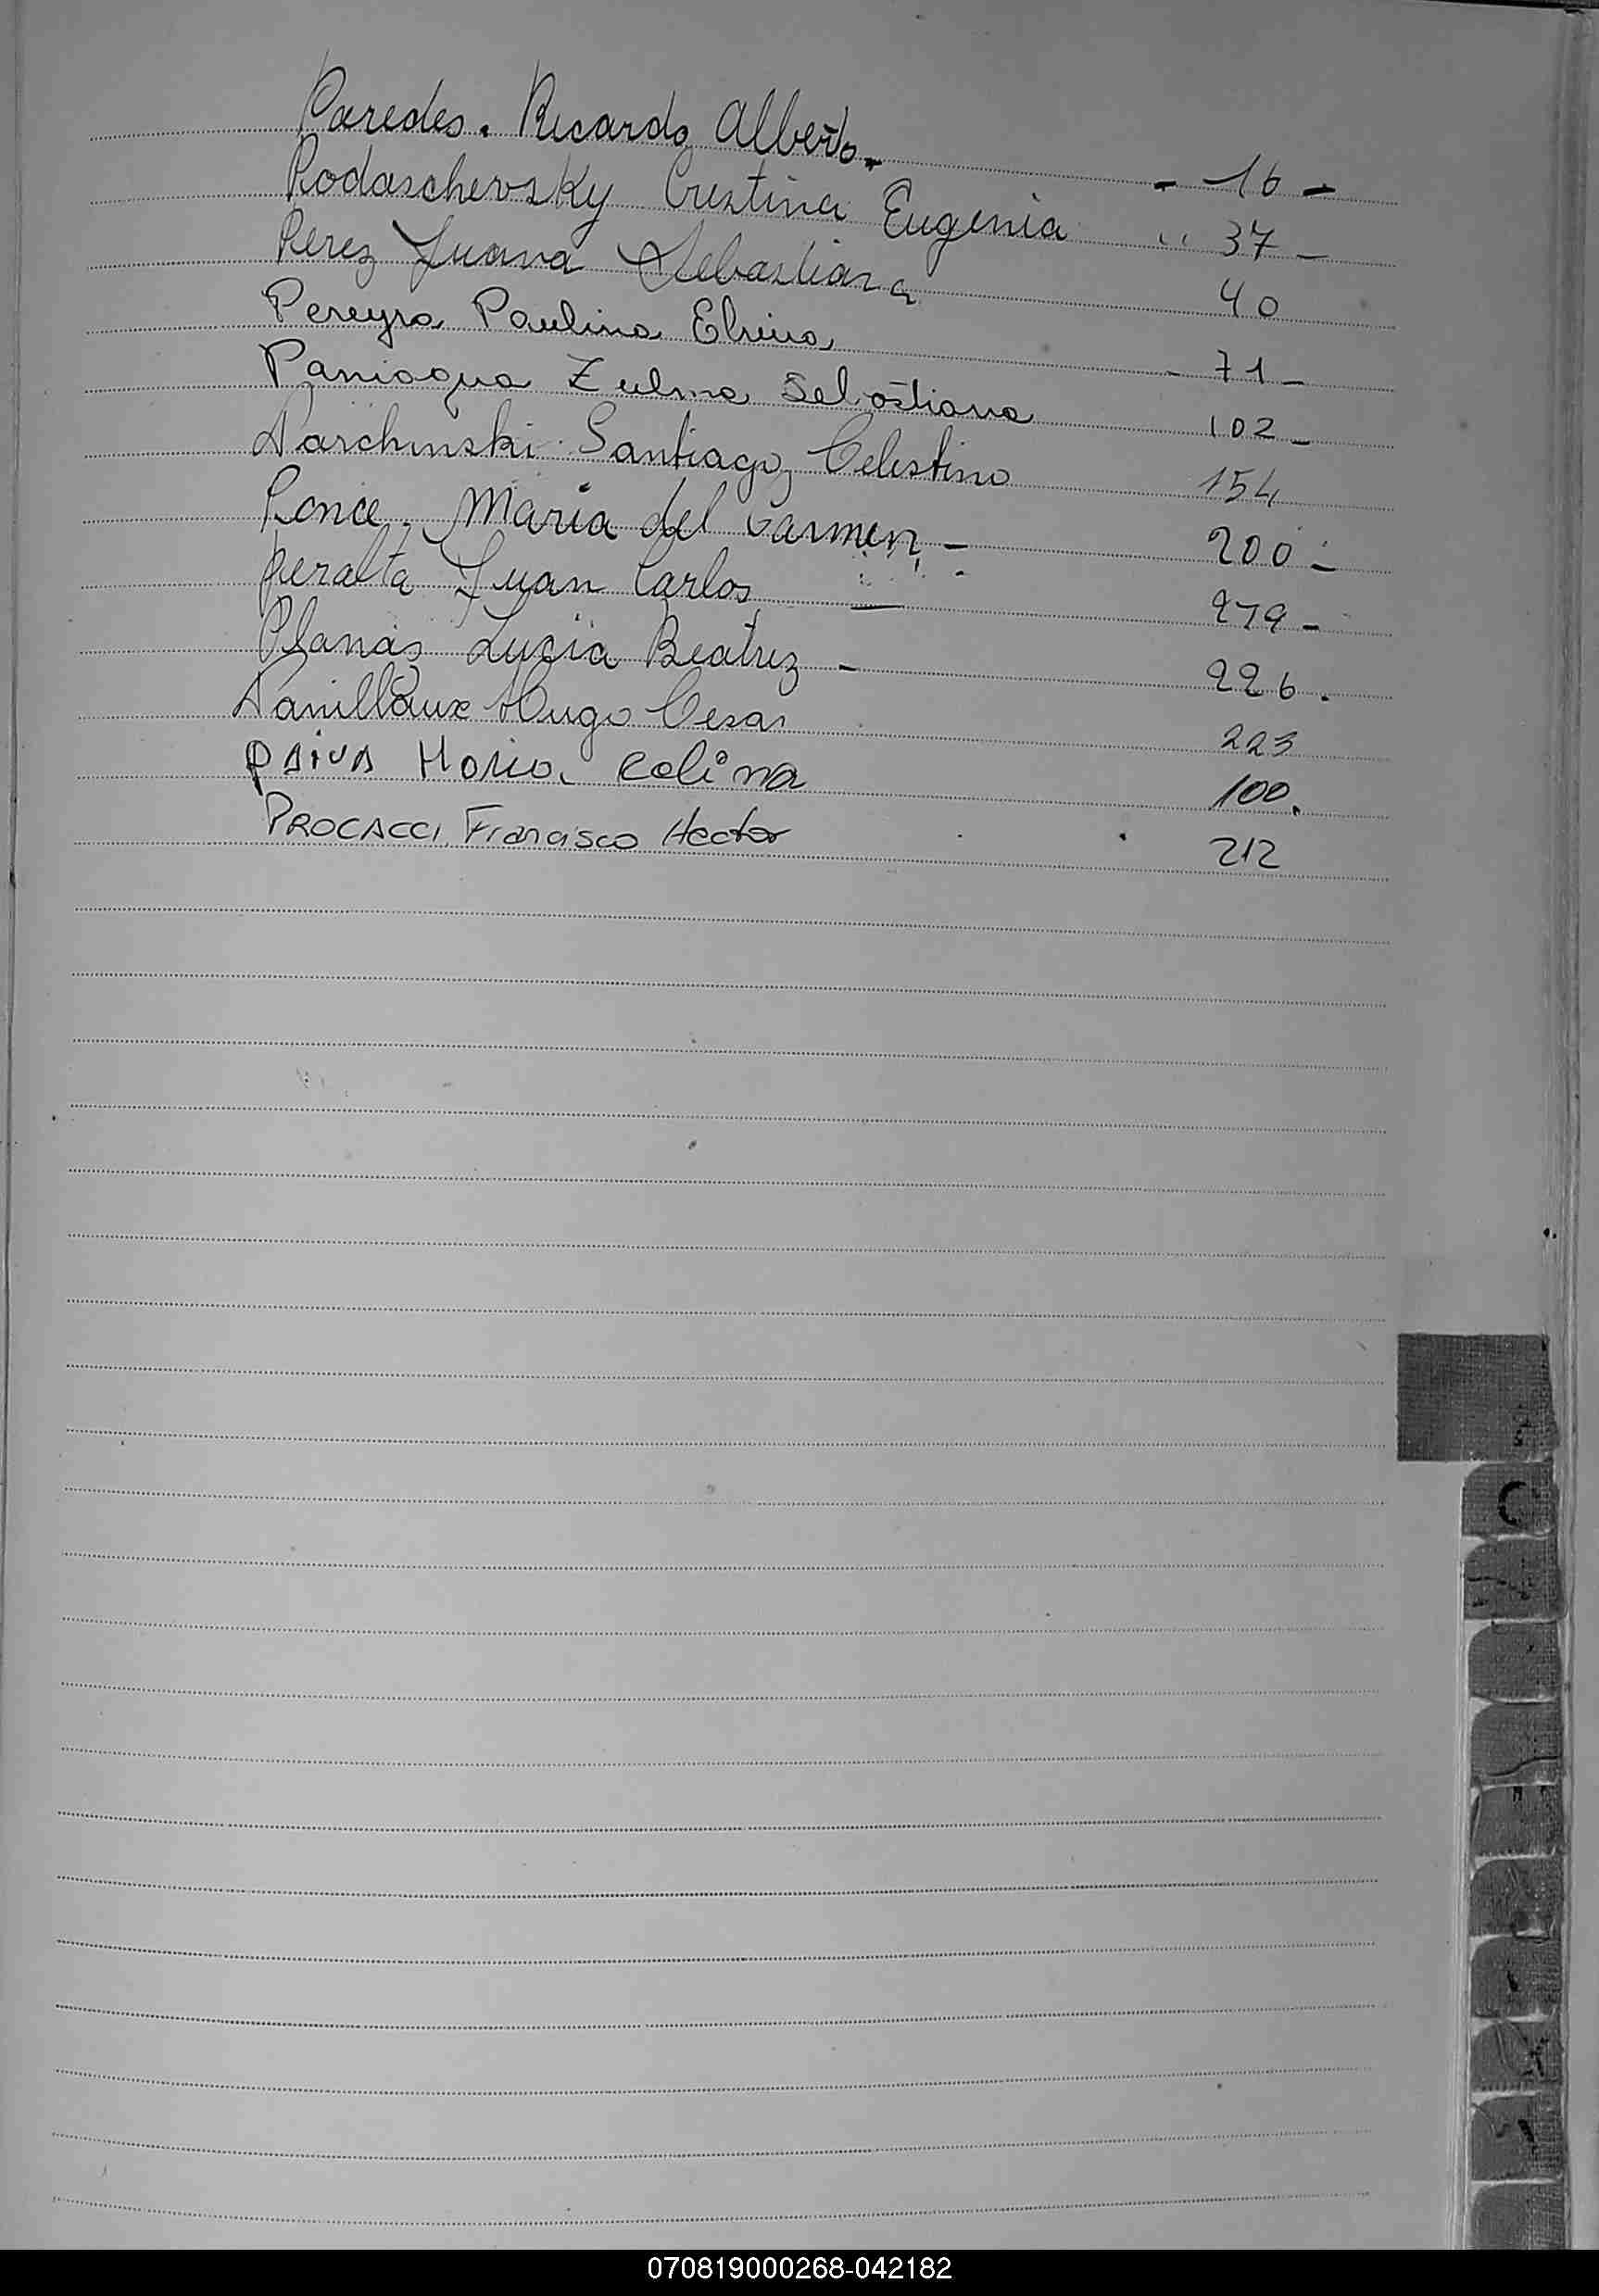 Paredes. Ricardo Alberto. - 16 -
Podaschevsky Cristina Eugenia " 37 -
Perez Juana Sebastiana 40
Pereyra Paulina Elvira - 71 -
Paniagua Zulma Sebastiana 102 -
Parchinski Santiago Celestino 154
Ponce. Maria del Carmen - 200 -
Peralta Juan Carlos - 219 -
Planas Lucia Beatriz - 226.
Panillaux Hugo Cesar 223
PAIVA Maria Celina 100.
PROCACCI, Francisco Hector 212
070819000268-042182